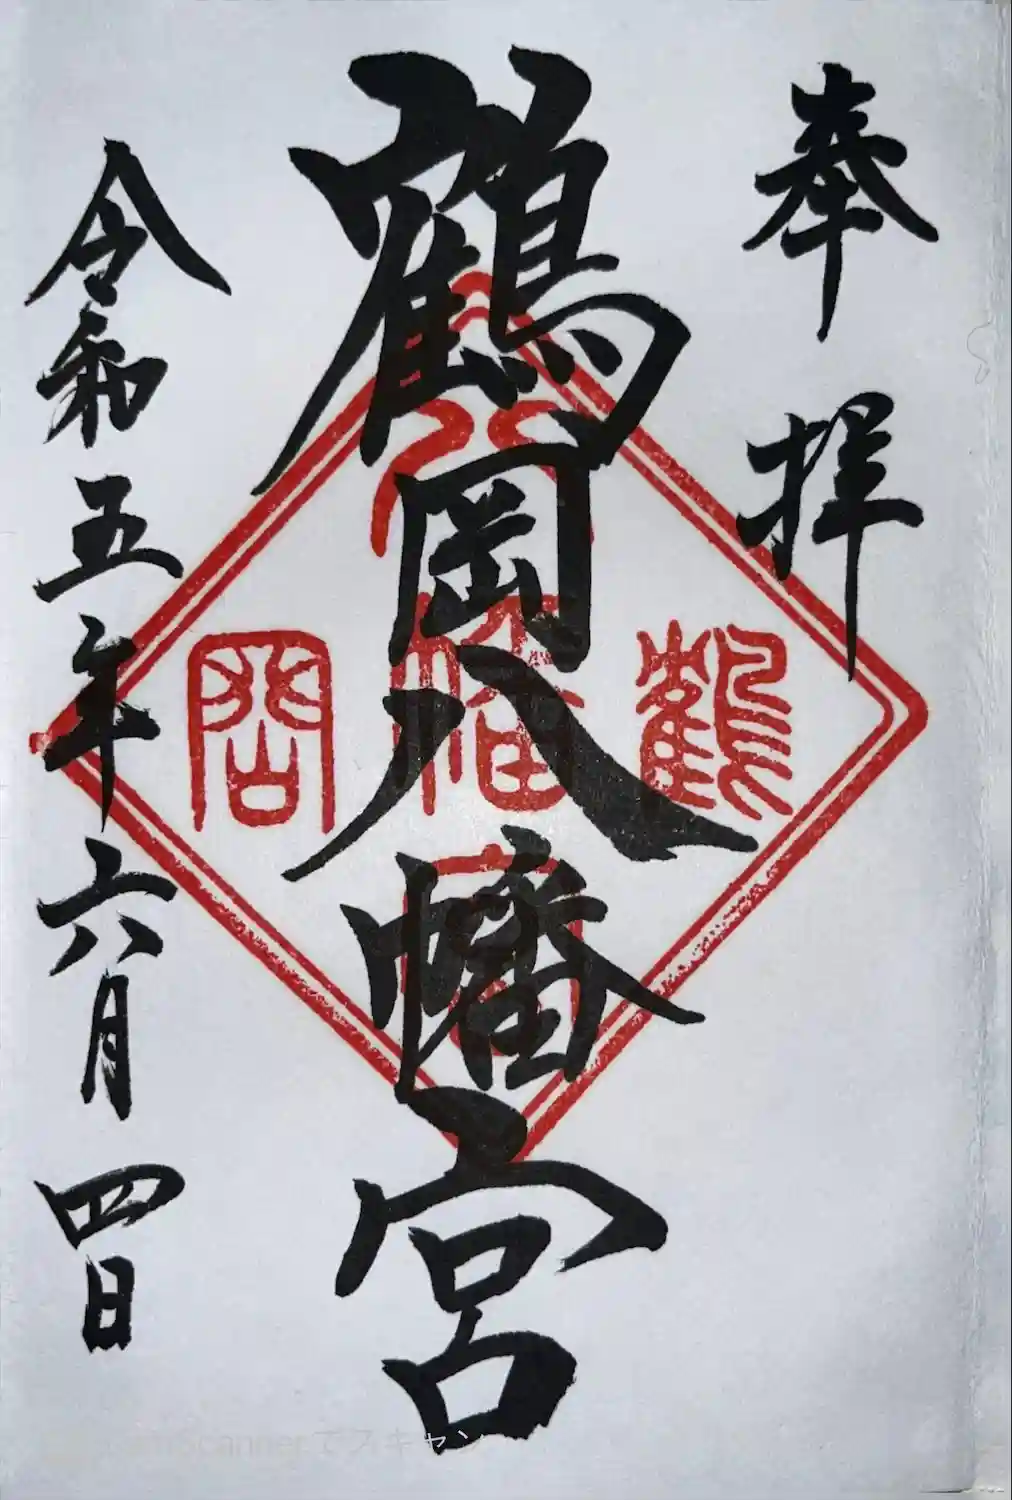 奉拝
鶴岡八幡宮
令和五年六月四日
鶴
八
幡
宮
岡
Scannerでスキャン